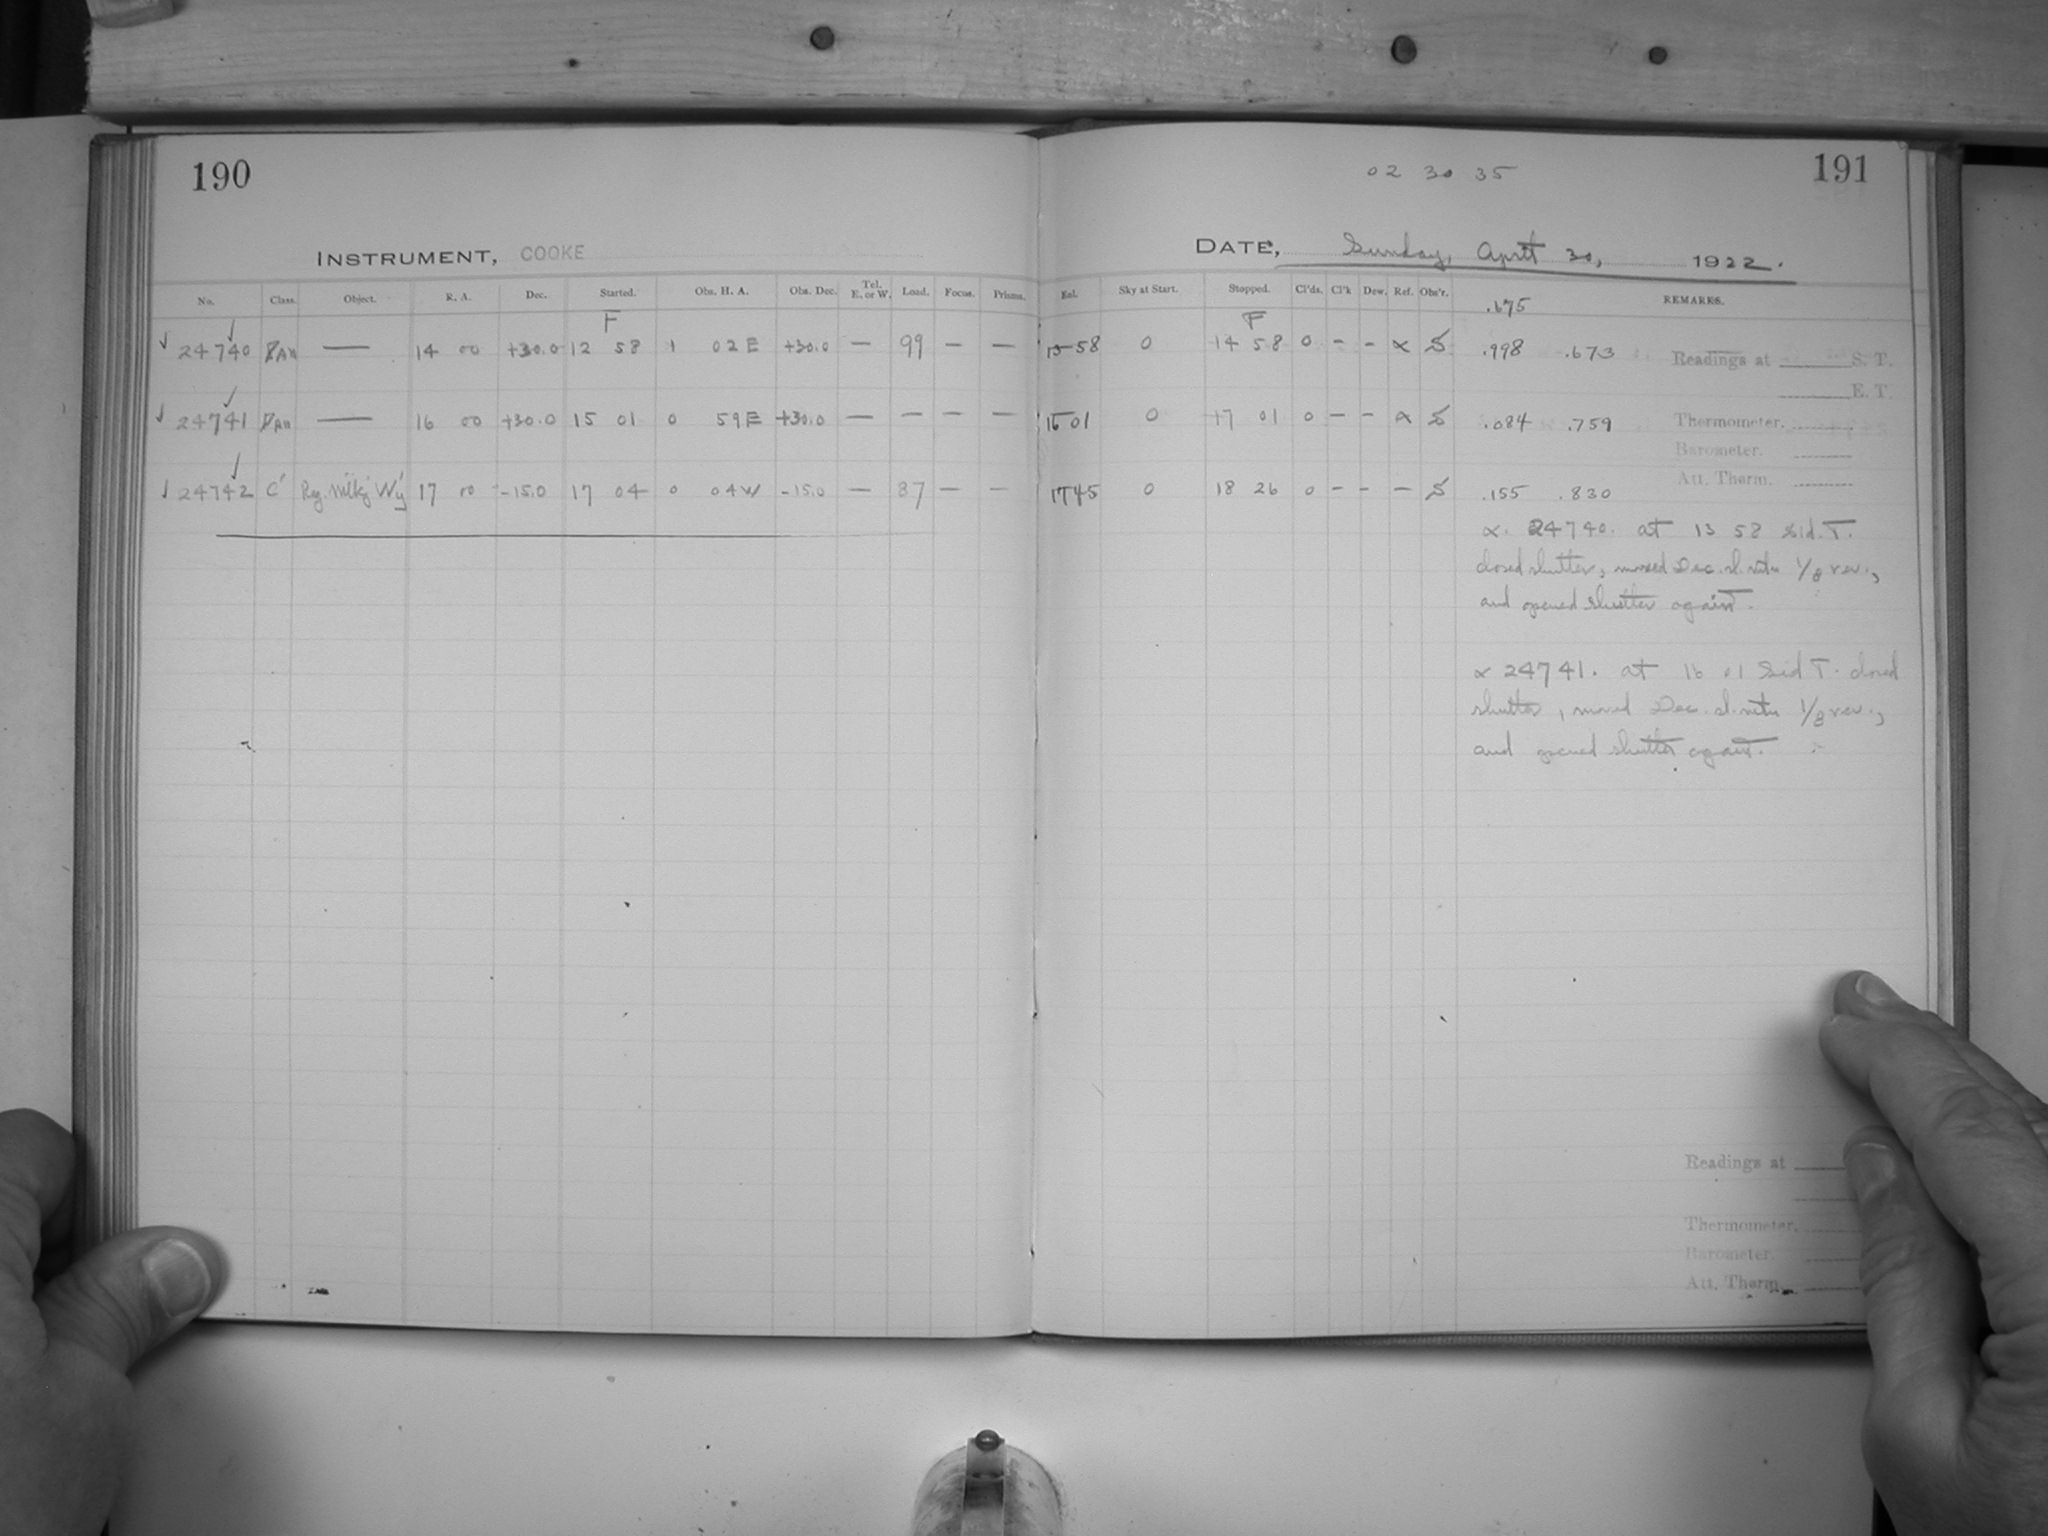 190
INSTRUMENT, COOKE
No. Class. Object. R. A. Dec. Started. Obs. H. A. Obs. Dec. Tel. E. or W. Load. Focus. Prisms.
F
24740 — 14 00 +30.0 12 58 1 02 E +30.0 — 99 — —
24741 — 16 00 +30.0 15 01 0 59 E +30.0 — — — —
24742 C' Reg. Milky Wy 17 00 -15.0 17 04 0 04 W -15.0 — 87 — —
02 30 35
191
DATE, Sunday, April 30, 1922.
Sky at Start. Stopped. Cl'ds. Cl'k Dew. Ref. Obs'r. REMARKS.
.675
F
13 58 0 14 58 0 - - α S .998 .673 Readings at S. T.
E. T.
0 17 01 0 - - α S .084 .759 Thermometer.
Barometer.
Att. Therm.
17 45 0 18 26 0 - - - S .155 .830
α. 24740. at 13 58 Sid. T.
closed shutter, moved Dec. 1/8 rev.,
and opened shutter again.
α 24741. at 16 01 Sid T. closed
shutter, moved Dec. 1/8 rev.,
and opened shutter again.
Readings at
Thermometer.
Barometer.
Att. Therm.